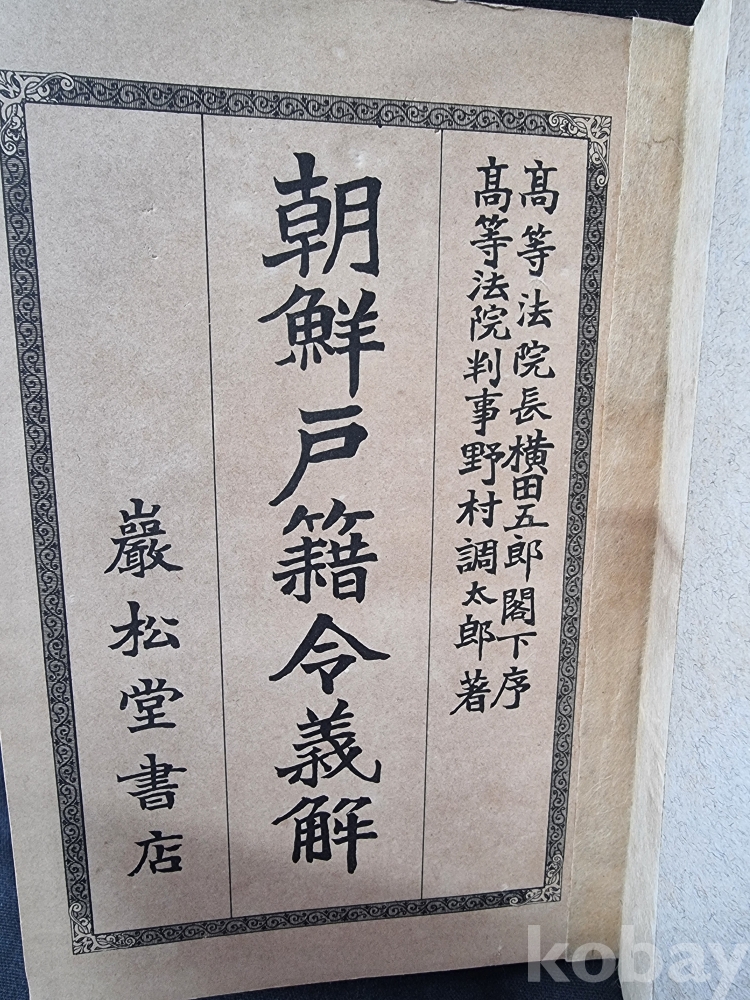 高等法院長横田五郎閣下序
高等法院判事野村調太郎著
朝鮮戸籍令義解
巖松堂書店
kobay